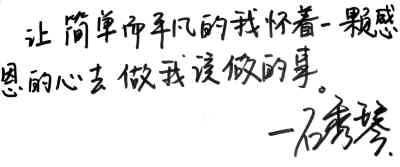 让简单而平凡的我怀着一颗感
恩的心去做我该做的事。
一石秀琴